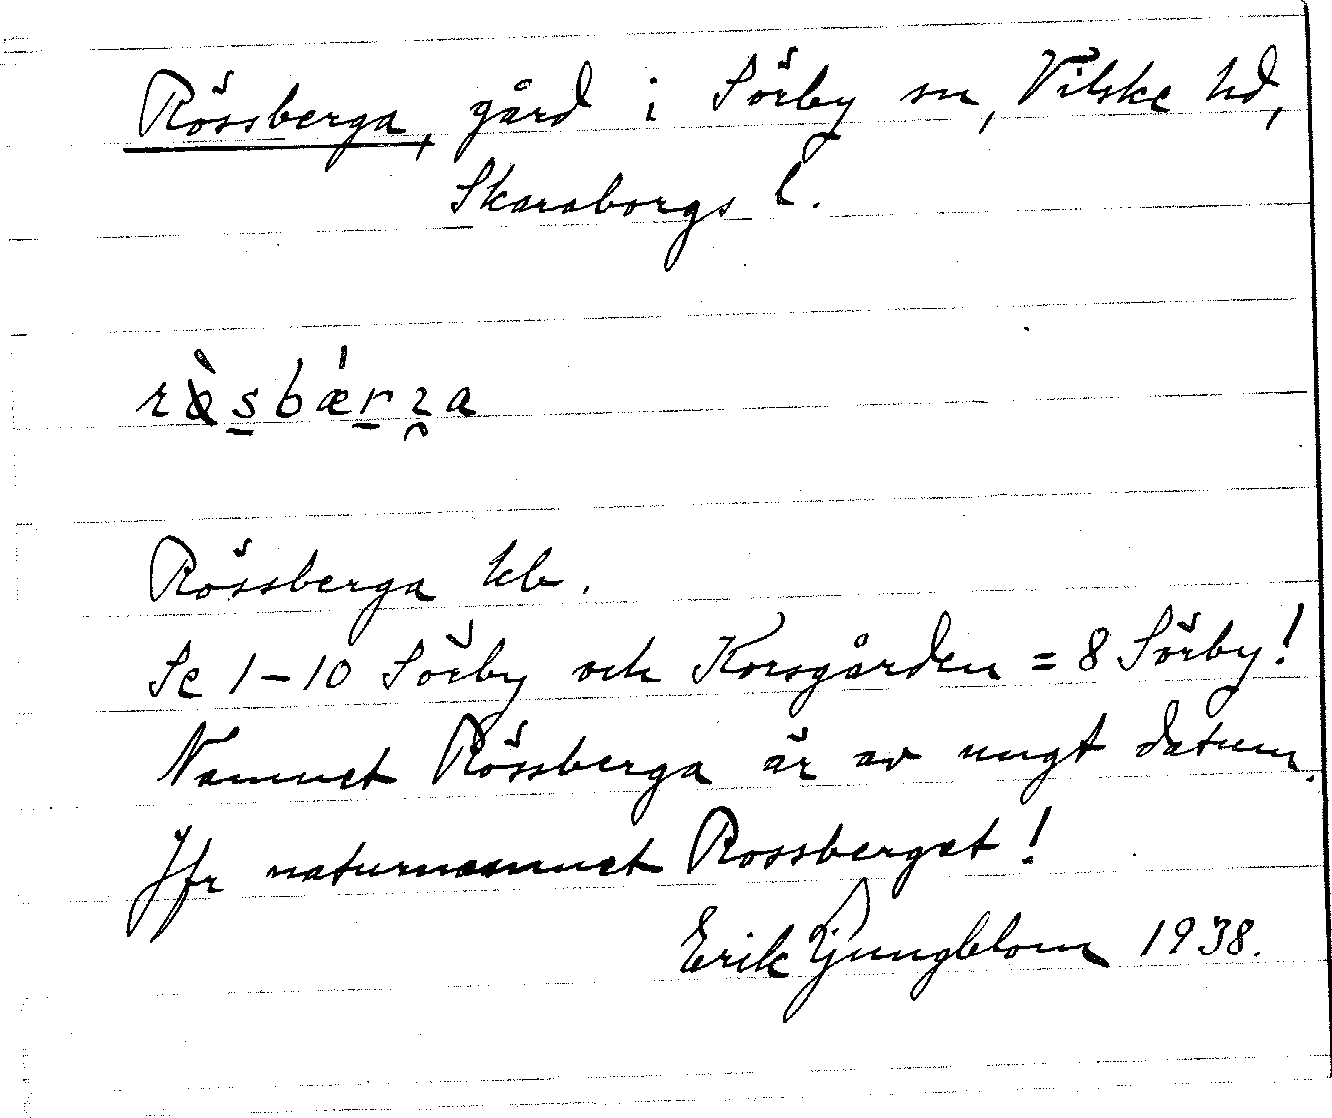 Rössberga, gård i Sörby sn, Vilske hd,
Skaraborgs l.
Rössberga hb.
Se 1–10 Sörby och Korsgården = 8 Sörby!
Namnet Rössberga är av ungt datum.
Jfr naturnamnet Rossberget!
Erik Ljungblom 1938.